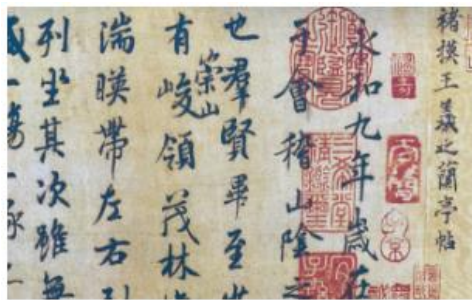 褚摸王羲之蘭亭帖
永和九年歲在
于會稽山陰之
也羣賢畢至少
有崇山峻領茂林
湍暎帶左右引
列坐其次雖無
一觴一詠